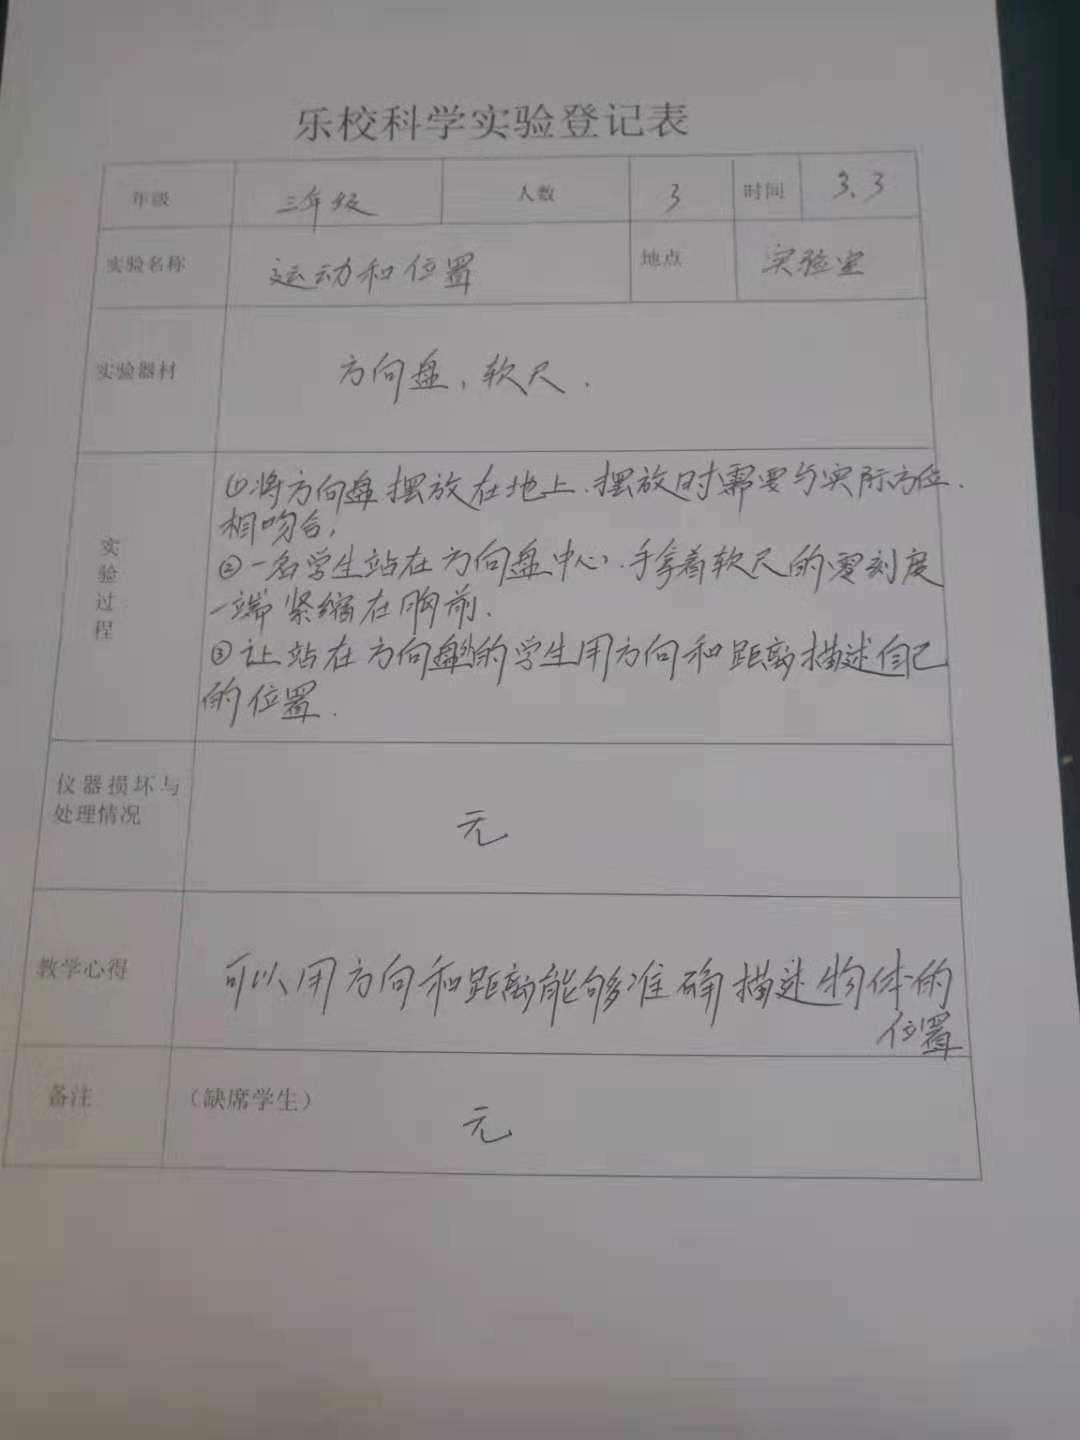 乐校科学实验登记表
年级 三年级 人数 3 时间 3.3
实验名称 运动和位置 地点 实验室
实验器材 方向盘，软尺．
实验过程
①将方向盘摆放在地上．摆放时需要与实际方位．
相吻合，
②一名学生站在方向盘中心．手拿着软尺的零刻度
一端紧缩在胸前．
③让站在方向盘外的学生用方向和距离描述自己
的位置．
仪器损坏与
处理情况 无
教学心得 可以用方向和距离能够准确描述物体的
位置
备注 （缺席学生）
无